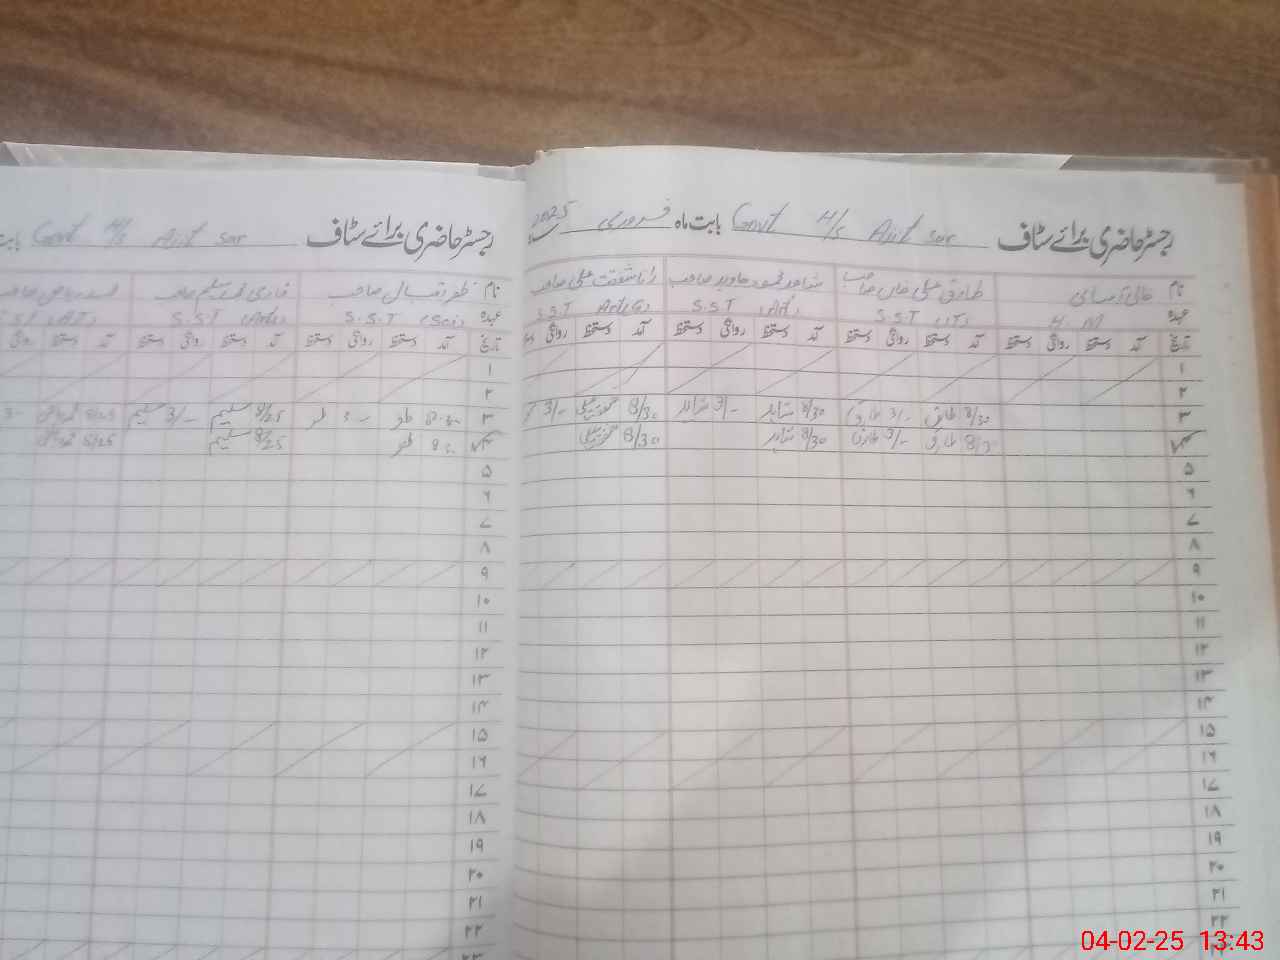 رجسٹر حاضری برائے سٹاف Govt H/S Ajit sar بابت ماہ فروری 2025
نام خالی آسامی طارق علی خاں صاحب شاہد محمود جاوید صاحب رانا شفقت علی صاحب
عہدہ H.M S.S.T (IT) S.S.T (Art) S.S.T Art(G)
تاریخ آمد دستخط روانگی دستخط آمد دستخط روانگی دستخط آمد دستخط روانگی دستخط آمد دستخط روانگی
۱
۲
۳ 8/30 طارق 3/- طارق 8/30 شاہد 3/- شاہد 8/30 3/-
۴ 8/30 طارق 3/- طارق 8/30 شاہد 8/30
۵
۶
۷
۸
۹
۱۰
۱۱
۱۲
۱۳
۱۴
۱۵
۱۶
۱۷
۱۸
۱۹
۲۰
۲۱
۲۲
رجسٹر حاضری برائے سٹاف Govt H/S Ajit sar بابت
نام ظفر اقبال صاحب قاری محمد سلیم صاحب
عہدہ S.S.T (Sci) S.S.T (Art) S.S.T (AT)
تاریخ آمد دستخط روانگی دستخط آمد دستخط روانگی دستخط آمد دستخط روانگی
۱
۲
۳ سلیم 3/- سلیم 8/25
۴ 8/25 سلیم 8/25
۵
۶
۷
۸
۹
۱۰
۱۱
۱۲
۱۳
۱۴
۱۵
۱۶
۱۷
۱۸
۱۹
۲۰
۲۱
۲۲
۲۳
04-02-25 13:43